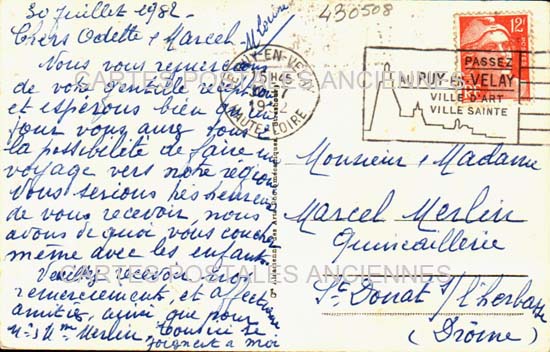 30 Juillet 1952
430508
Chers Odette & Marcel
Nous vous remercions
de votre gentille réception
et espérons bien qu'un
jour vous aurez tous
la possibilité de faire un
voyage vers notre région
Nous serions très heureux
de vous recevoir, nous
avons de quoi vous coucher
même avec les enfants.
Veuillez recevoir nos
remerciements, et affect
amitiés, ainsi que pour
Mr & Mme Merlin,
joignent à moi
LE PUY-EN-VELAY
HAUTE-LOIRE
PASSEZ
PUY-EN-VELAY
VILLE D'ART
VILLE SAINTE
12F
Monsieur & Madame
Marcel Merlin
Quincaillerie
St Donat s/ l'herbasse
(Drôme)
CARTES POSTALES ANCIENNES
CARTES POSTALES ANCIENNES